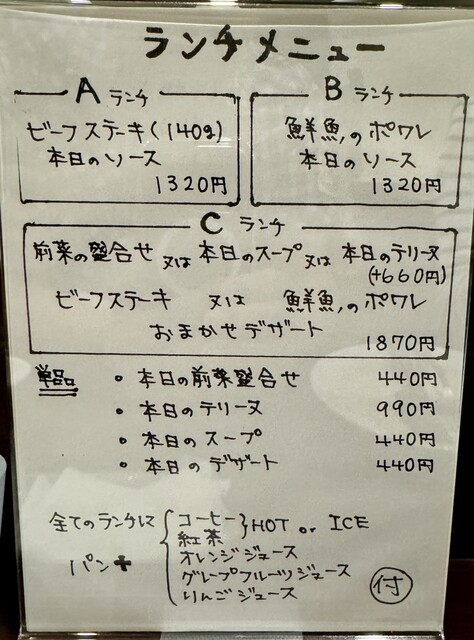 ランチメニュー
A ランチ
ビーフステーキ(140g)
本日のソース
1320円
B ランチ
鮮魚のポワレ
本日のソース
1320円
C ランチ
前菜の盛合せ 又は 本日のスープ 又は 本日のテリーヌ
(+660円)
ビーフステーキ 又は 鮮魚のポワレ
おまかせデザート
1870円
単品
・本日の前菜盛合せ 440円
・本日のテリーヌ 990円
・本日のスープ 440円
・本日のデザート 440円
全てのランチに
パン+
コーヒー
紅茶
HOT or ICE
オレンジジュース
グレープフルーツジュース
りんごジュース
付